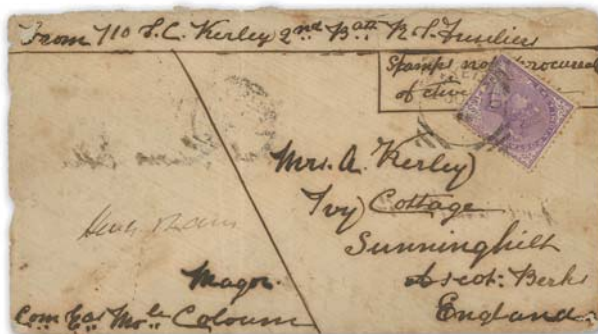 From 110 S.C. Kerley 2nd Batt R.S. Fusiliers
Stamps not procured
of
Mrs. A. Kerley
Ivy Cottage
Sunninghill
Ascot: Berks
England.
Major.
Com Mole Coloum